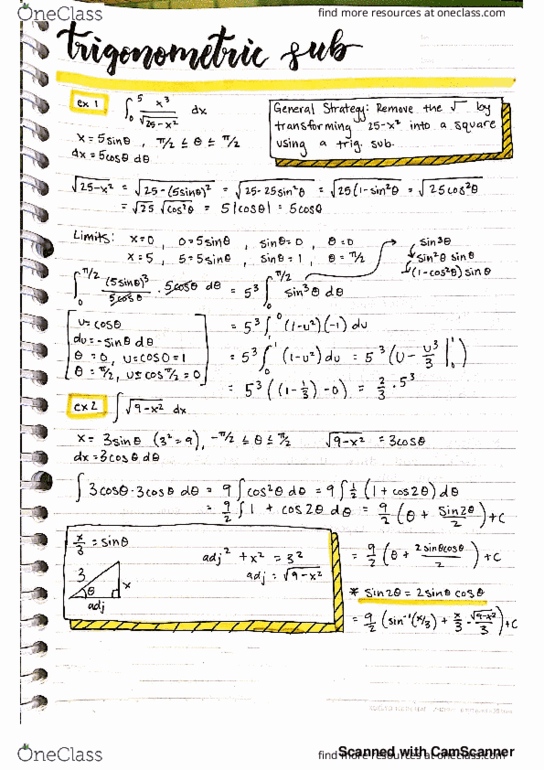 OneClass
find more resources at oneclass.com
trigonometric sub
ex 1 ∫₀⁵ x³/√(25-x²) dx
General Strategy: Remove the √ by
transforming 25-x² into a square
using a trig. sub.
x = 5sinθ , π/2 ≤ θ ≤ π/2
dx = 5cosθ dθ
√(25-x²) = √(25-(5sinθ)²) = √(25-25sin²θ) = √(25(1-sin²θ) = √(25cos²θ)
= √25 √(cos²θ) = 5|cosθ| = 5cosθ
Limits: x=0, 0=5sinθ, sinθ=0, θ=0
x=5, 5=5sinθ, sinθ=1, θ=π/2
sin³θ
sin²θ sinθ
(1-cos²θ) sinθ
∫₀^(π/2) (5sinθ)³/5cosθ · 5cosθ dθ = 5³ ∫₀^(π/2) sin³θ dθ
u=cosθ
du=-sinθ dθ
θ=0, u=cos0=1
θ=π/2, u=cosπ/2=0
= 5³ ∫₁⁰ (1-u²)(-1) du
= 5³ ∫₀¹ (1-u²) du = 5³ (u - u³/3 |₀¹)
= 5³ ((1-1/3)-0) = 2/3 · 5³
ex 2 ∫ √(9-x²) dx
x = 3sinθ (3²=9), -π/2 ≤ θ ≤ π/2 √(9-x²) = 3cosθ
dx=3cosθ dθ
∫ 3cosθ · 3cosθ dθ = 9∫cos²θ dθ = 9∫ 1/2 (1+cos2θ) dθ
= 9/2 ∫ 1 + cos2θ dθ = 9/2 (θ + sin2θ/2) + C
x/3 = sinθ
adj² + x² = 3²
adj = √(9-x²)
3
x
θ
adj
= 9/2 (θ + 2sinθcosθ/2) + C
* sin2θ = 2sinθ cosθ
= 9/2 (sin⁻¹(x/3) + x/3 · √(9-x²)/3) + C
OneClass
find more resources at oneclass.com
Scanned with CamScanner